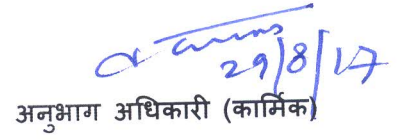 29/8/17
अनुभाग अधिकारी (कार्मिक)